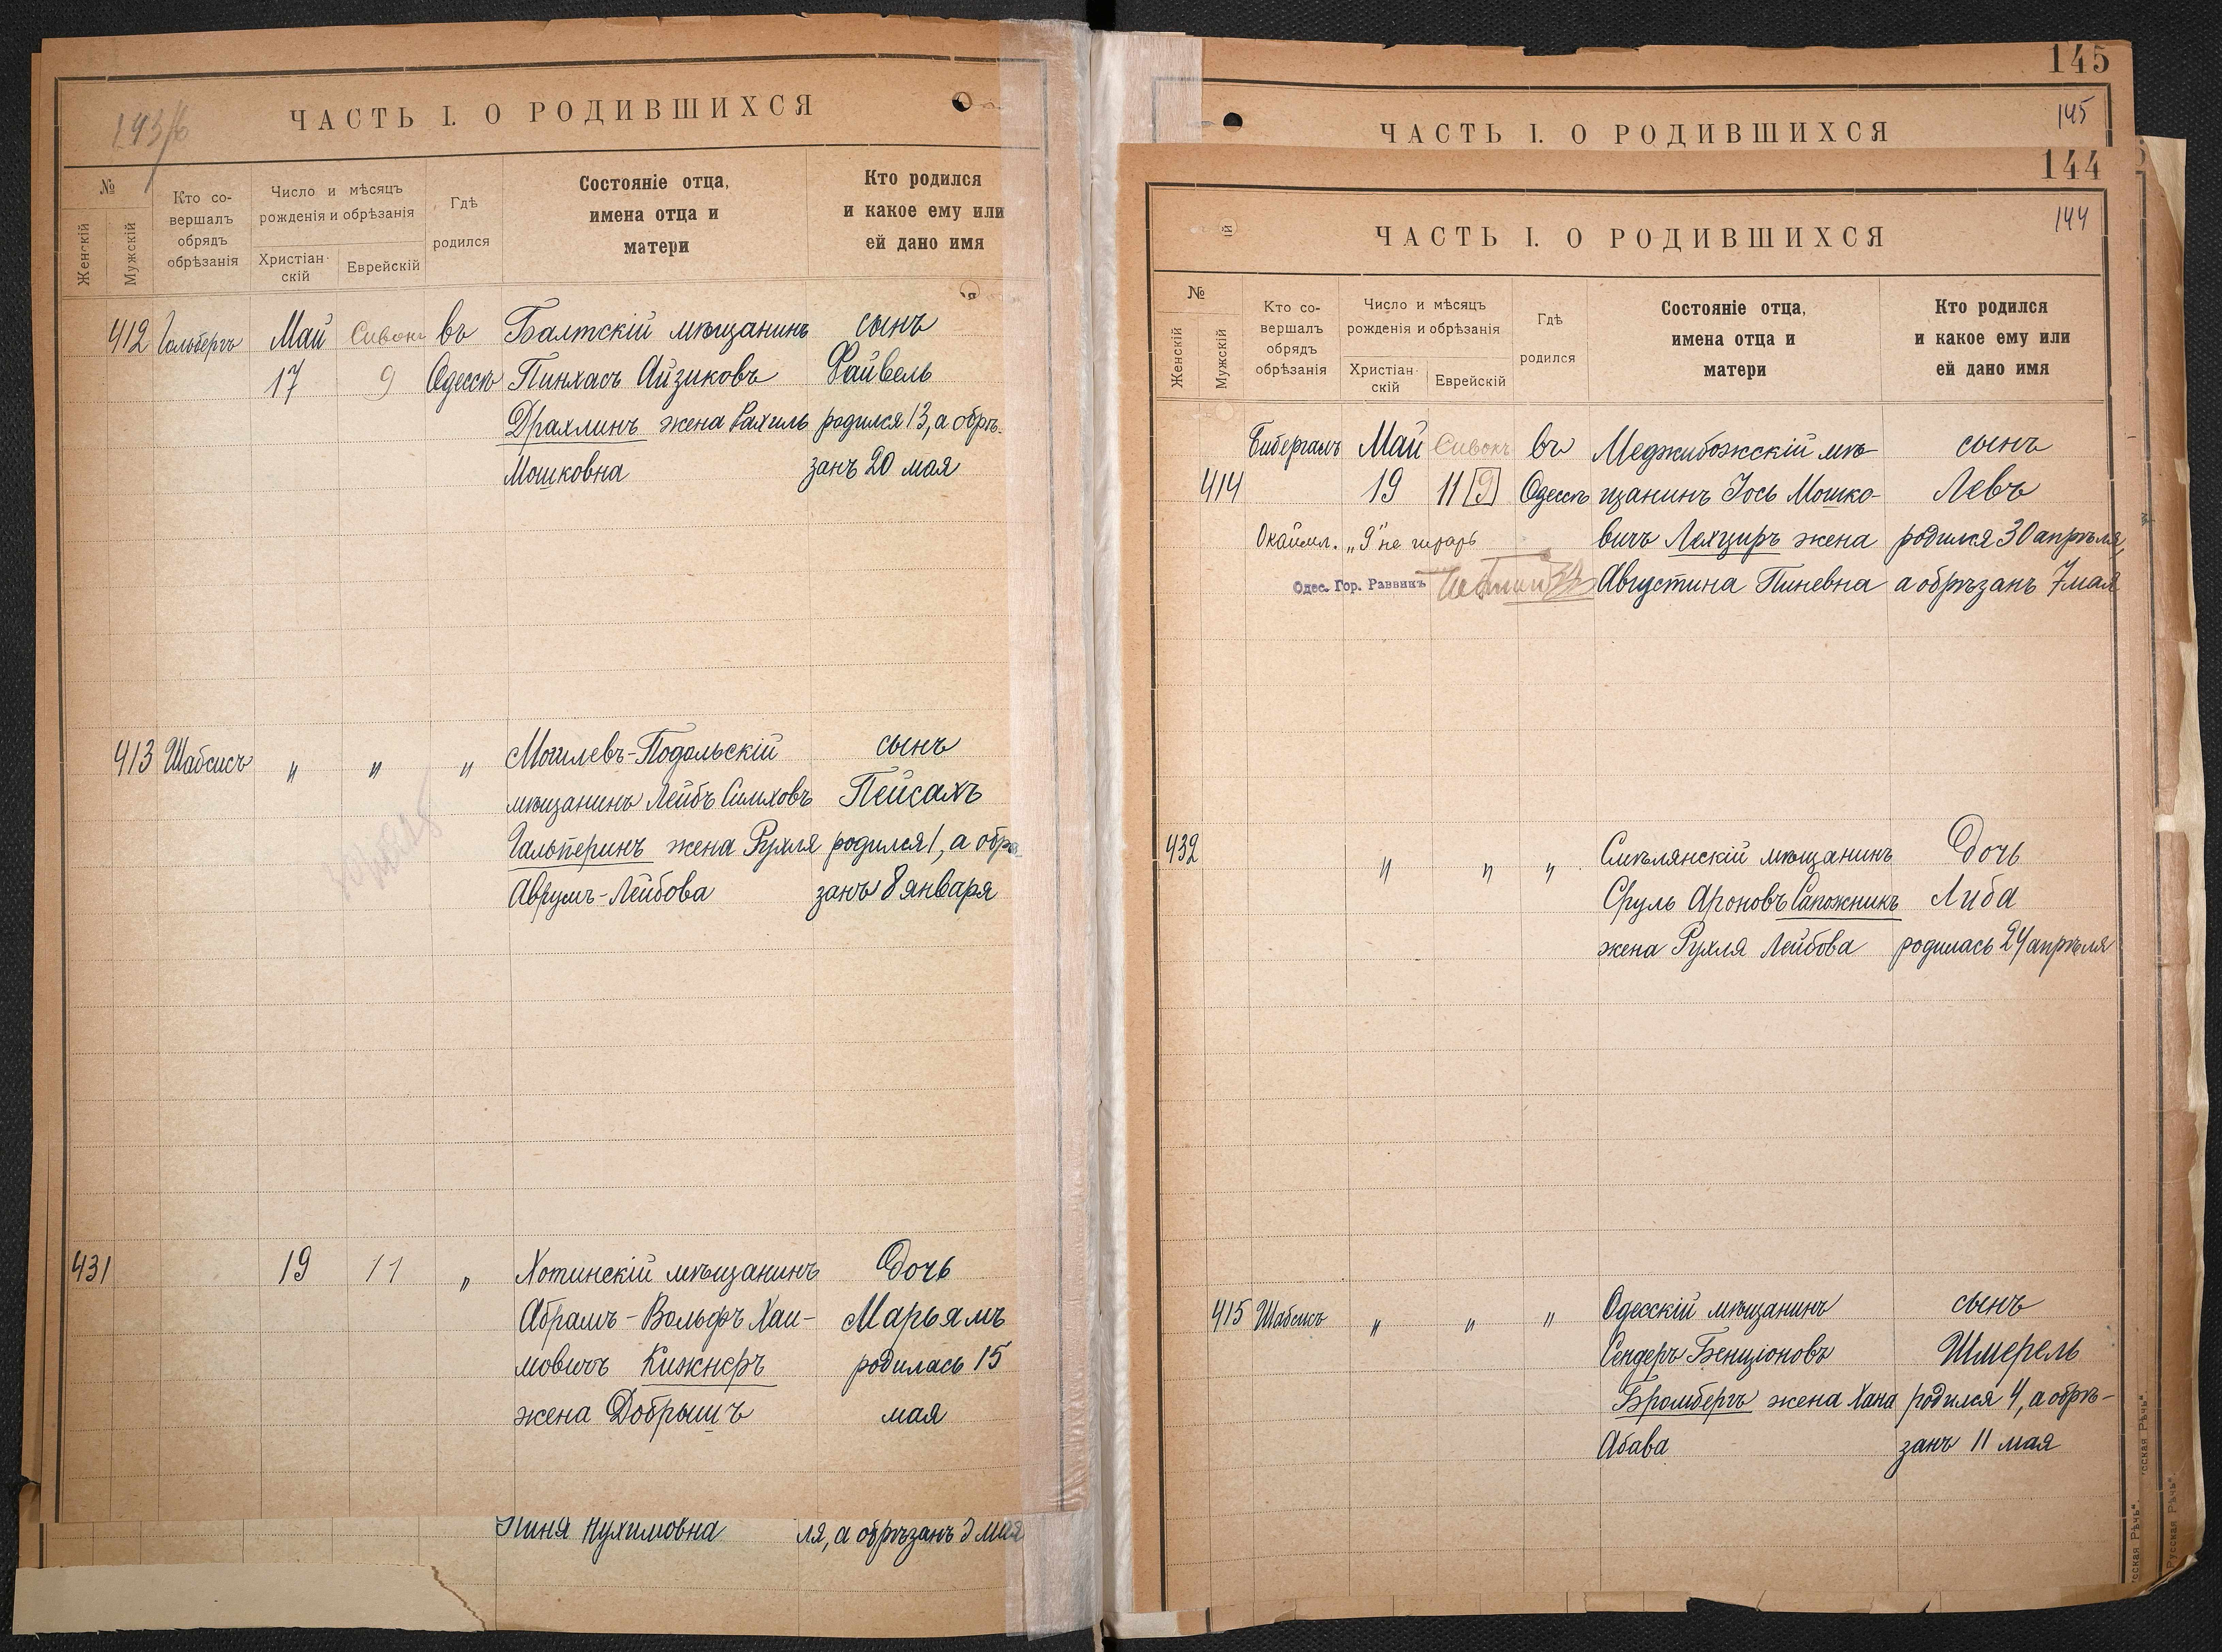 143/б
ЧАСТЬ I. О РОДИВШИХСЯ
№
Женскій
Мужскій
Кто со-
вершалъ
обрядъ
обрѣзанія
Число и мѣсяцъ
рожденія и обрѣзанія
Христіан-
скій
Еврейскій
Гдѣ
родился
Состояніе отца,
имена отца и
матери
Кто родился
и какое ему или
ей дано имя
412 Гольбергъ Май Сивонъ въ Балтскій мѣщанинъ сынъ
17 9 Одессѣ Пинхасъ Айзиковъ Файвель
Драхлинъ жена Рахиль родился 13, а обрѣ-
Мошковна занъ 20 мая
413 Шабсисъ " " " Могилевъ-Подольскій сынъ
мѣщанинъ Лейбъ Симховъ Пейсахъ
Гальперинъ жена Рухля родился 1, а обрѣ-
Аврумъ-Лейбова занъ 8 января
431 19 11 " Хотинскій мѣщанинъ Дочь
Абрамъ-Вольфъ Хаи- Марьямъ
мовичъ Кижнеръ родилась 15
жена Добрышъ мая
Нухимовна ля, а обрѣзанъ мая
145
145
ЧАСТЬ I. О РОДИВШИХСЯ
144
144
ЧАСТЬ I. О РОДИВШИХСЯ
№
Женскій
Мужскій
Кто со-
вершалъ
обрядъ
обрѣзанія
Число и мѣсяцъ
рожденія и обрѣзанія
Христіан-
скій
Еврейскій
Гдѣ
родился
Состояніе отца,
имена отца и
матери
Кто родился
и какое ему или
ей дано имя
Бибергалъ Май Сивонъ въ Меджибожскій мѣ- сынъ
414 19 11 [9] Одессѣ щанинъ Іось Мошко- Левъ
Окаймл. „9" не читать вичъ Лехциръ жена родился 30 апрѣля,
Одес. Гор. Раввинъ Августина Пиневна а обрѣзанъ 7 мая
432 " " " Смѣлянскій мѣщанинъ Дочь
Сруль Ароновъ Сапожникъ Либа
жена Рухля Лейбова родилась 24 апрѣля
415 Шабсисъ " " " Одесскій мѣщанинъ сынъ
Сендеръ Бенціоновъ Шмерель
Бромбергъ жена Хана родился 4, а обрѣ-
Абава занъ 11 мая
Русская Рѣчь"